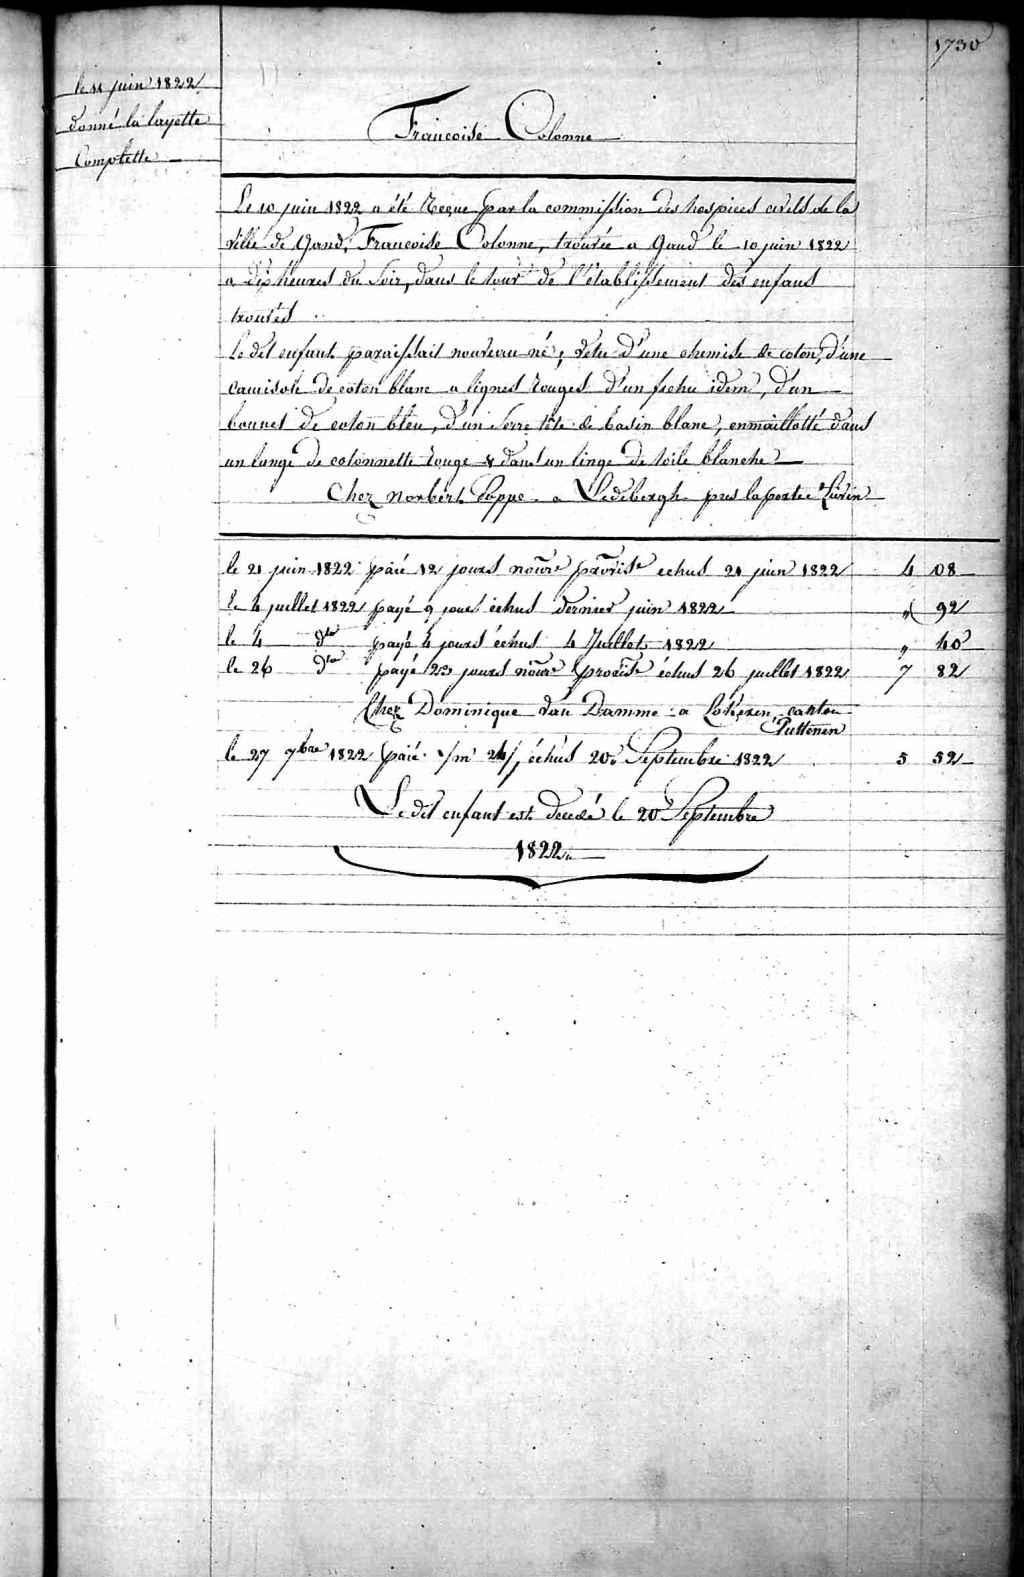 1730
le 11 juin 1822
donné la layette
Complètte
Francoise Colonne
Le 10 juin 1822 a été Reçue par la commission des hospices civils de la
ville de Gand, Francoise Colonne, trouvée a Gand le 10 juin 1822
a dix heures du soir, dans le tour de l'établissement des enfans
trouvés
Le dit enfant paraissait nouveau né, vetu d'une chemise de coton, d'une
camisole de coton blanc a lignes rouges d'un fichu idem, d'un
bonnet de coton bleu, d'un serre tête de basin blanc, enmaillotté dans
un lange de cotonnette rouge & dans un linge de toile blanche
Chez Norbert Poppe a Ledebergh pres la porte
le 21 juin 1822 páié 12 jours nourre provise echus 21 juin 1822 4 08
le 4 juillet 1822 payé 9 jours échus dernier juin 1822 " 92
le 4 dto payé 4 jours échus 4 Juillet 1822 " 40
le 26 dto payé 23 jours nourre provise échus 26 juillet 1822 7 82
Chez Dominique Van Damme a canton
le 27 7bre 1822 paié échus 20 Septembre 1822 5 52
Le dit enfant est decedé le 20 Septembre
1822